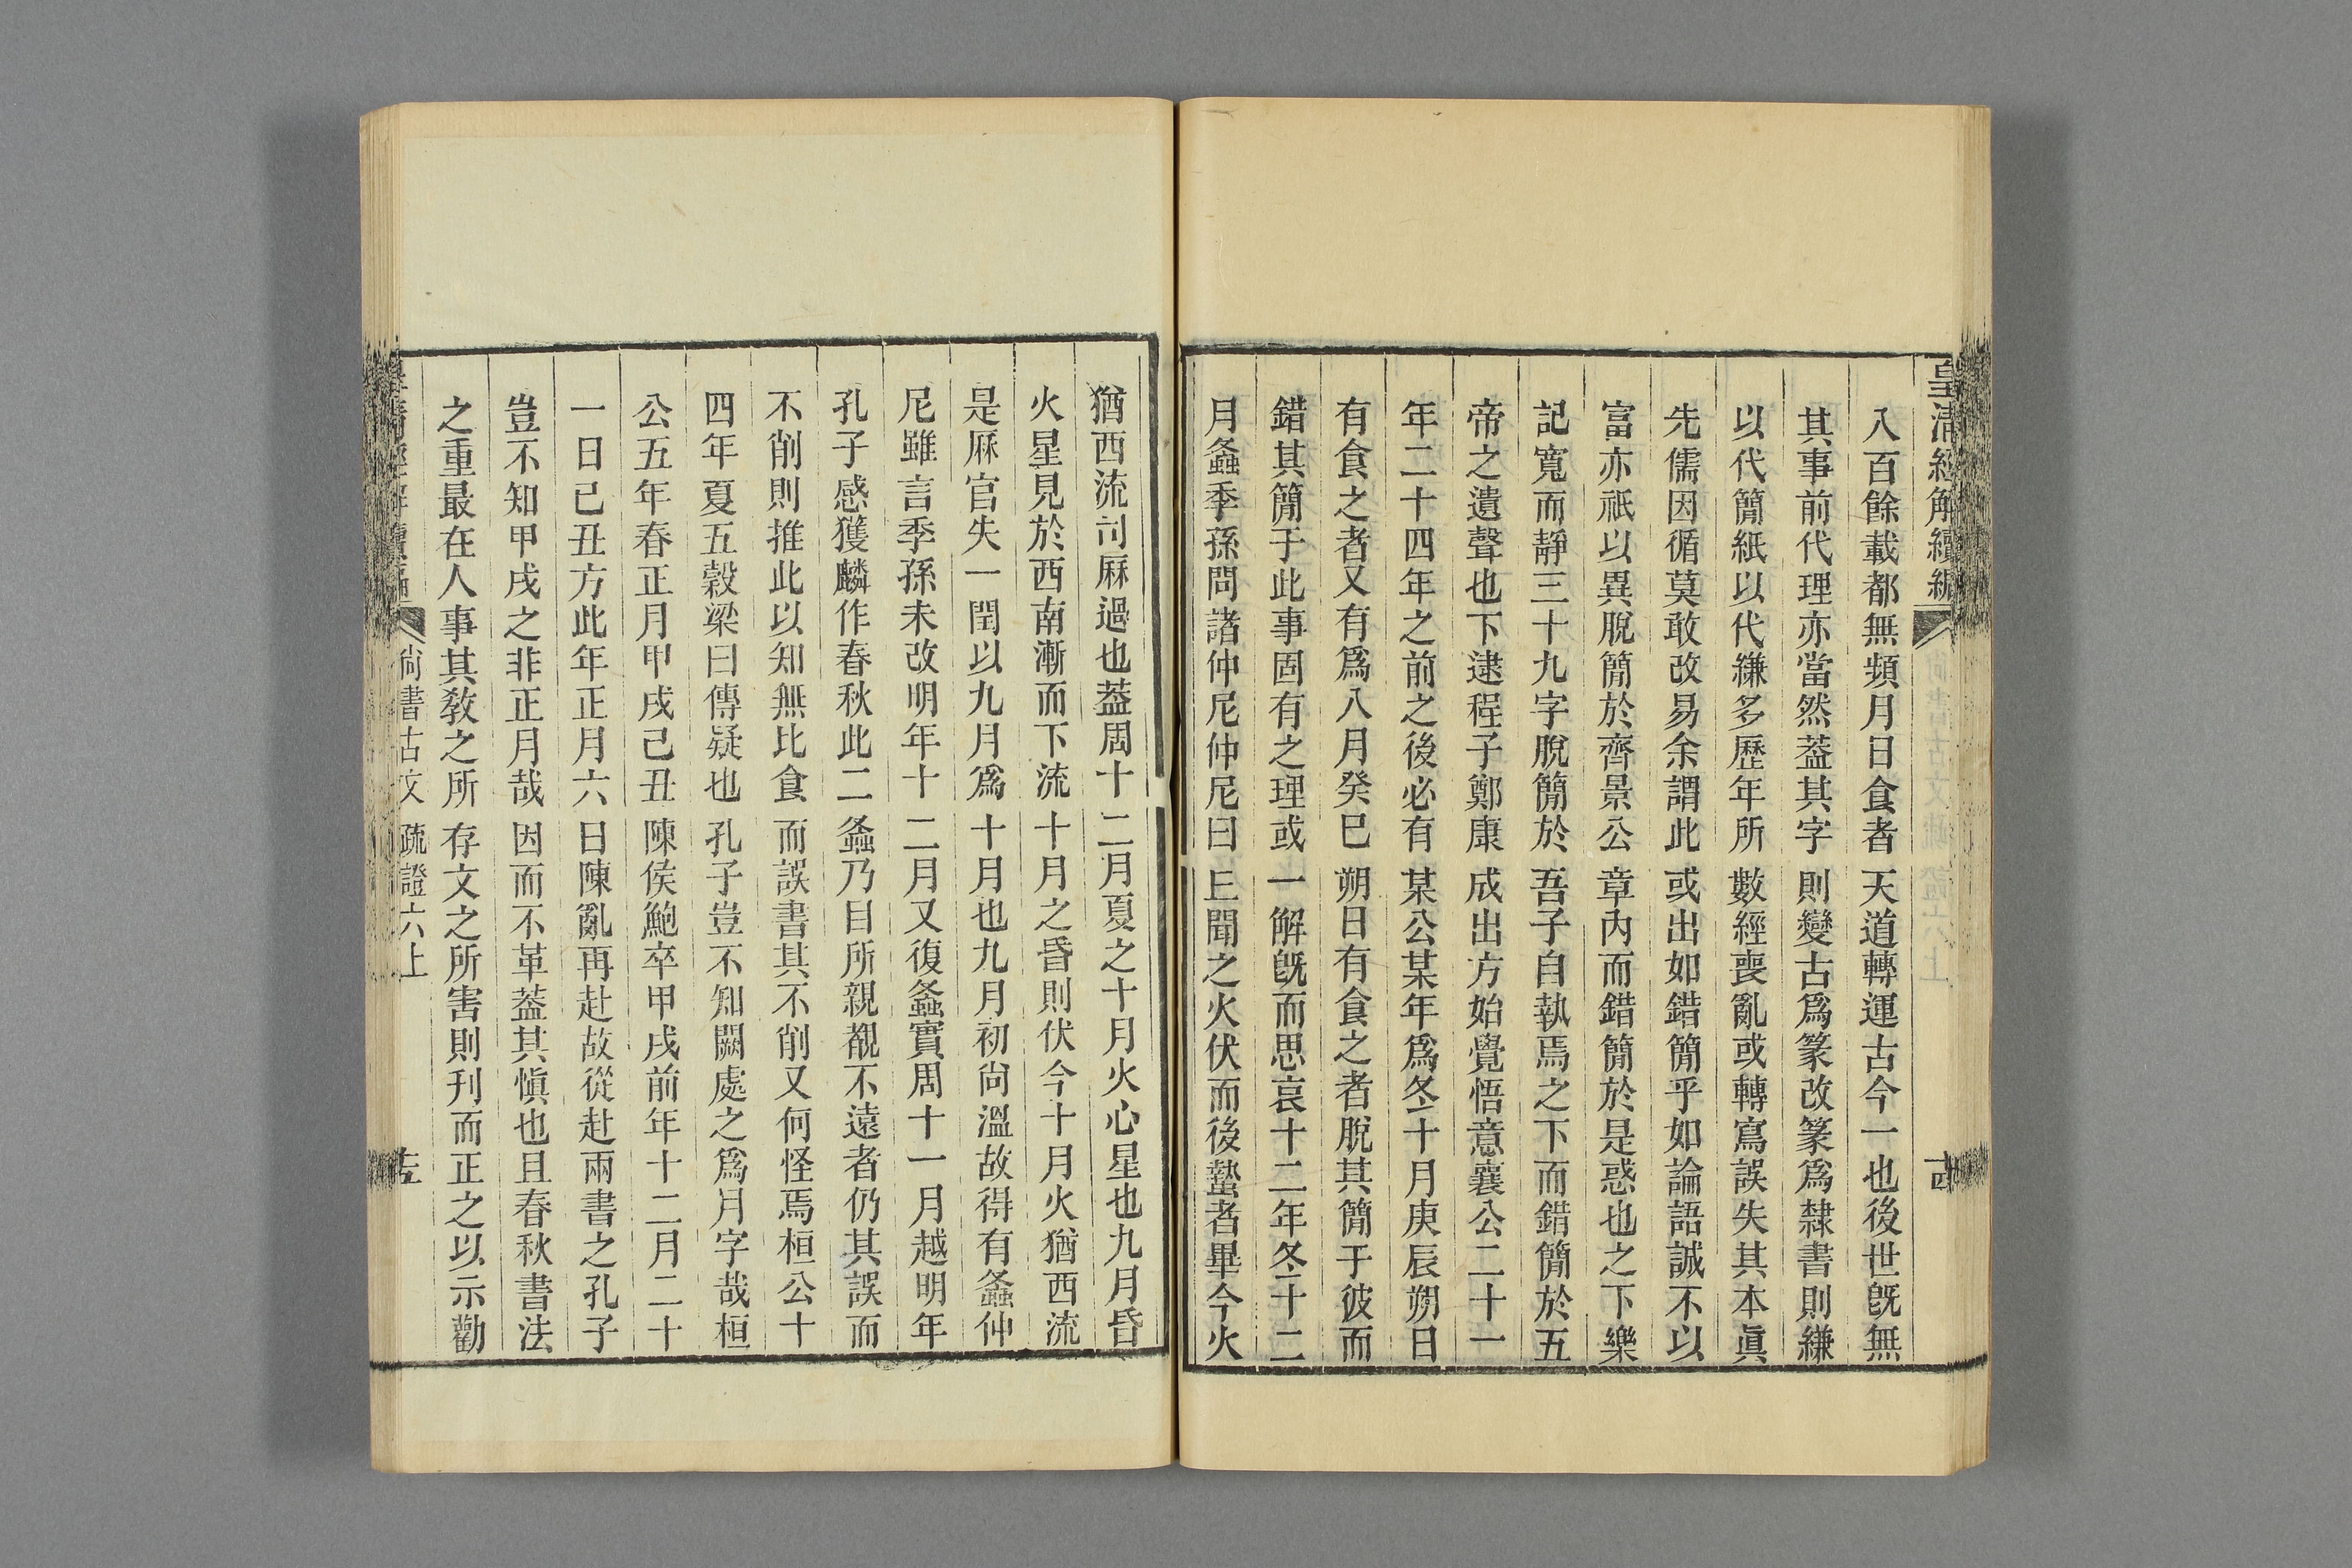 皇清經解續編
八百餘載都無頻月日食者天道轉運古今一也後世旣無
其事前代理亦當然葢其字則變古爲篆改篆爲隸書則縑
以代簡紙以代縑多歷年所數經喪亂或轉寫誤失其本眞
先儒因循莫敢改易余謂此或出如錯簡乎如論語誠不以
富亦祇以異脫簡於齊景公章內而錯簡於是惑也之下樂
記寬而靜三十九字脫簡於吾子自執焉之下而錯簡於五
帝之遺聲也下逮程子鄭康成出方始覺悟意襄公二十一
年二十四年之前之後必有某公某年爲冬十月庚辰朔日
有食之者又有爲八月癸巳朔日有食之者脫其簡于彼而
錯其簡于此事固有之理或一解旣而思哀十二年冬十二
月螽季孫問諸仲尼仲尼曰丘聞之火伏而後蟄者畢今火
猶西流司厤過也葢周十二月夏之十月火心星也九月昏
火星見於西南漸而下流十月之昏則伏今十月火猶西流
是厤官失一閏以九月爲十月也九月初尙溫故得有螽仲
尼雖言季孫未改明年十二月又復螽實周十一月越明年
孔子感獲麟作春秋此二螽乃目所親覩不遠者仍其誤而
不削則推此以知無比食而誤書其不削又何怪焉桓公十
四年夏五穀梁曰傳疑也孔子豈不知闕處之爲月字哉桓
公五年春正月甲戌己丑陳侯鮑卒甲戌前年十二月二十
一日己丑方此年正月六日陳亂再赴故從赴兩書之孔子
豈不知甲戌之非正月哉因而不革葢其愼也且春秋書法
之重最在人事其敎之所存文之所害則刋而正之以示勸
皇清經解續編
尙書古文疏證六上